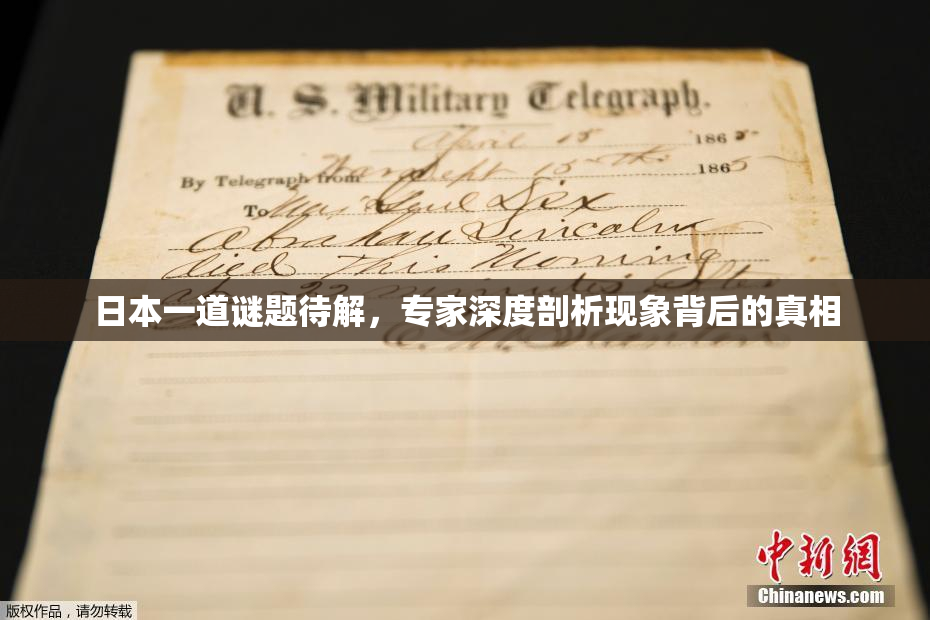 U. S. Military Telegraph.
April 15 1865
By Telegraph from War Dept 15th 1865
To Maj Genl Dix
Abraham Lincoln
died This Morning
at 22 minutes after
日本一道谜题待解，专家深度剖析现象背后的真相
中新網
Chinanews.com
版权作品，请勿转载